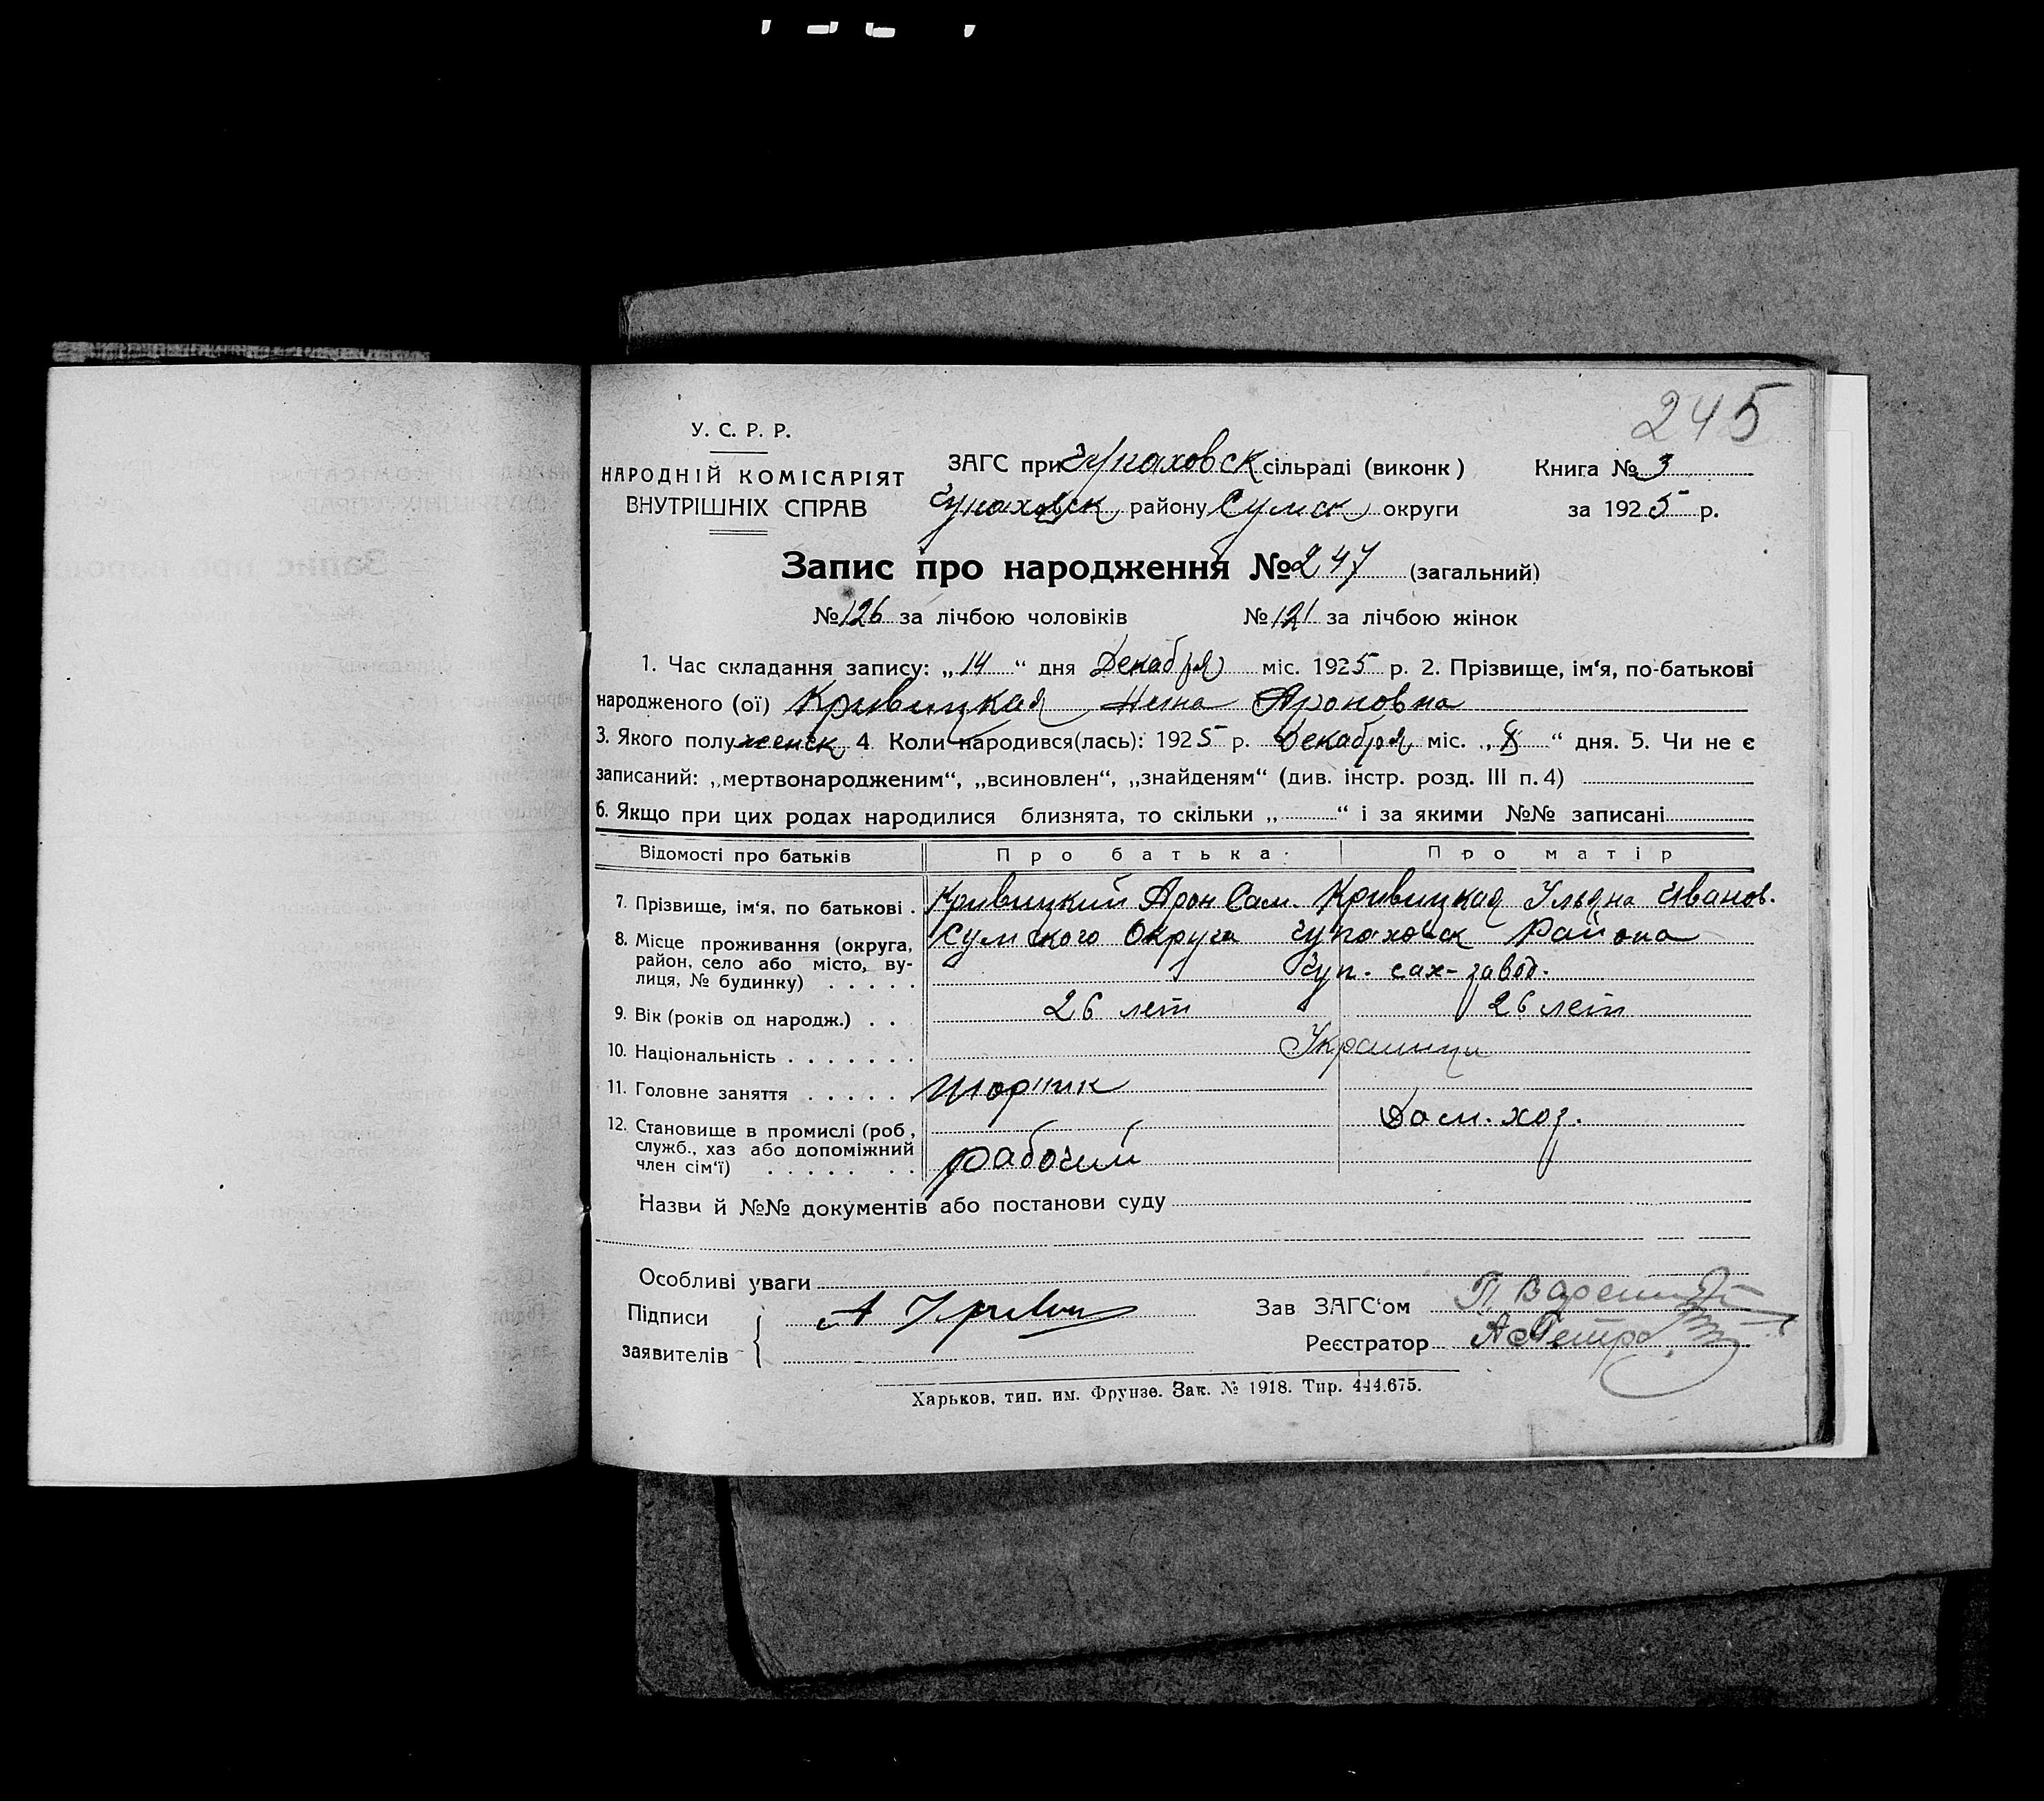 245
У. С. Р. Р.
НАРОДНІЙ КОМІСАРІЯТ
ВНУТРІШНІХ СПРАВ
ЗАГС при Чупаховск сільраді (виконк) Книга № 3
Чупаховск району Сумск округи за 1925 р.
Запис про народження № 247 (загальний)
№ 126 за лічбою чоловіків № 121 за лічбою жінок
1. Час складання запису: „14“ дня Декабря міс. 1925 р. 2. Прізвище, ім‘я, по-батькові
народженого (ої) Кривицкая Нина Ароновна
3. Якого полу женск 4. Коли народився(лась): 1925 р. Декабря міс. „X“ дня. 5. Чи не є
записаний: „мертвонародженим“, „всиновлен“, „знайденям“ (див. інстр. розд. III п. 4)
6. Якщо при цих родах народилися близнята, то скільки „ “ і за якими №№ записані
Відомості про батьків Про батька Про матір
7. Прізвище, ім‘я, по батькові . Кривицкий Арон Сам. Кривицкая Ульяна Иванов.
8. Місце проживання (округа, Сумского Округа Чупаховск Района
район, село або місто, ву-
лиця, № будинку) . . . . . Чуп. сах-завод.
9. Вік (років од народж.) . . 26 лет 26 лет
10. Національність . . . . . . . Украинци
11. Головне заняття . . . . . шорник
12. Становище в промислі (роб., Дом. хоз.
служб., хаз або допоміжний рабочий
член сім‘ї) . . . . . . .
Назви й №№ документів або постанови суду
Особливі уваги
Підписи Зав ЗАГС‘ом
заявителів Реєстратор
Харьков, тип. им. Фрунзе. Зак. № 1918. Тир. 444.675.